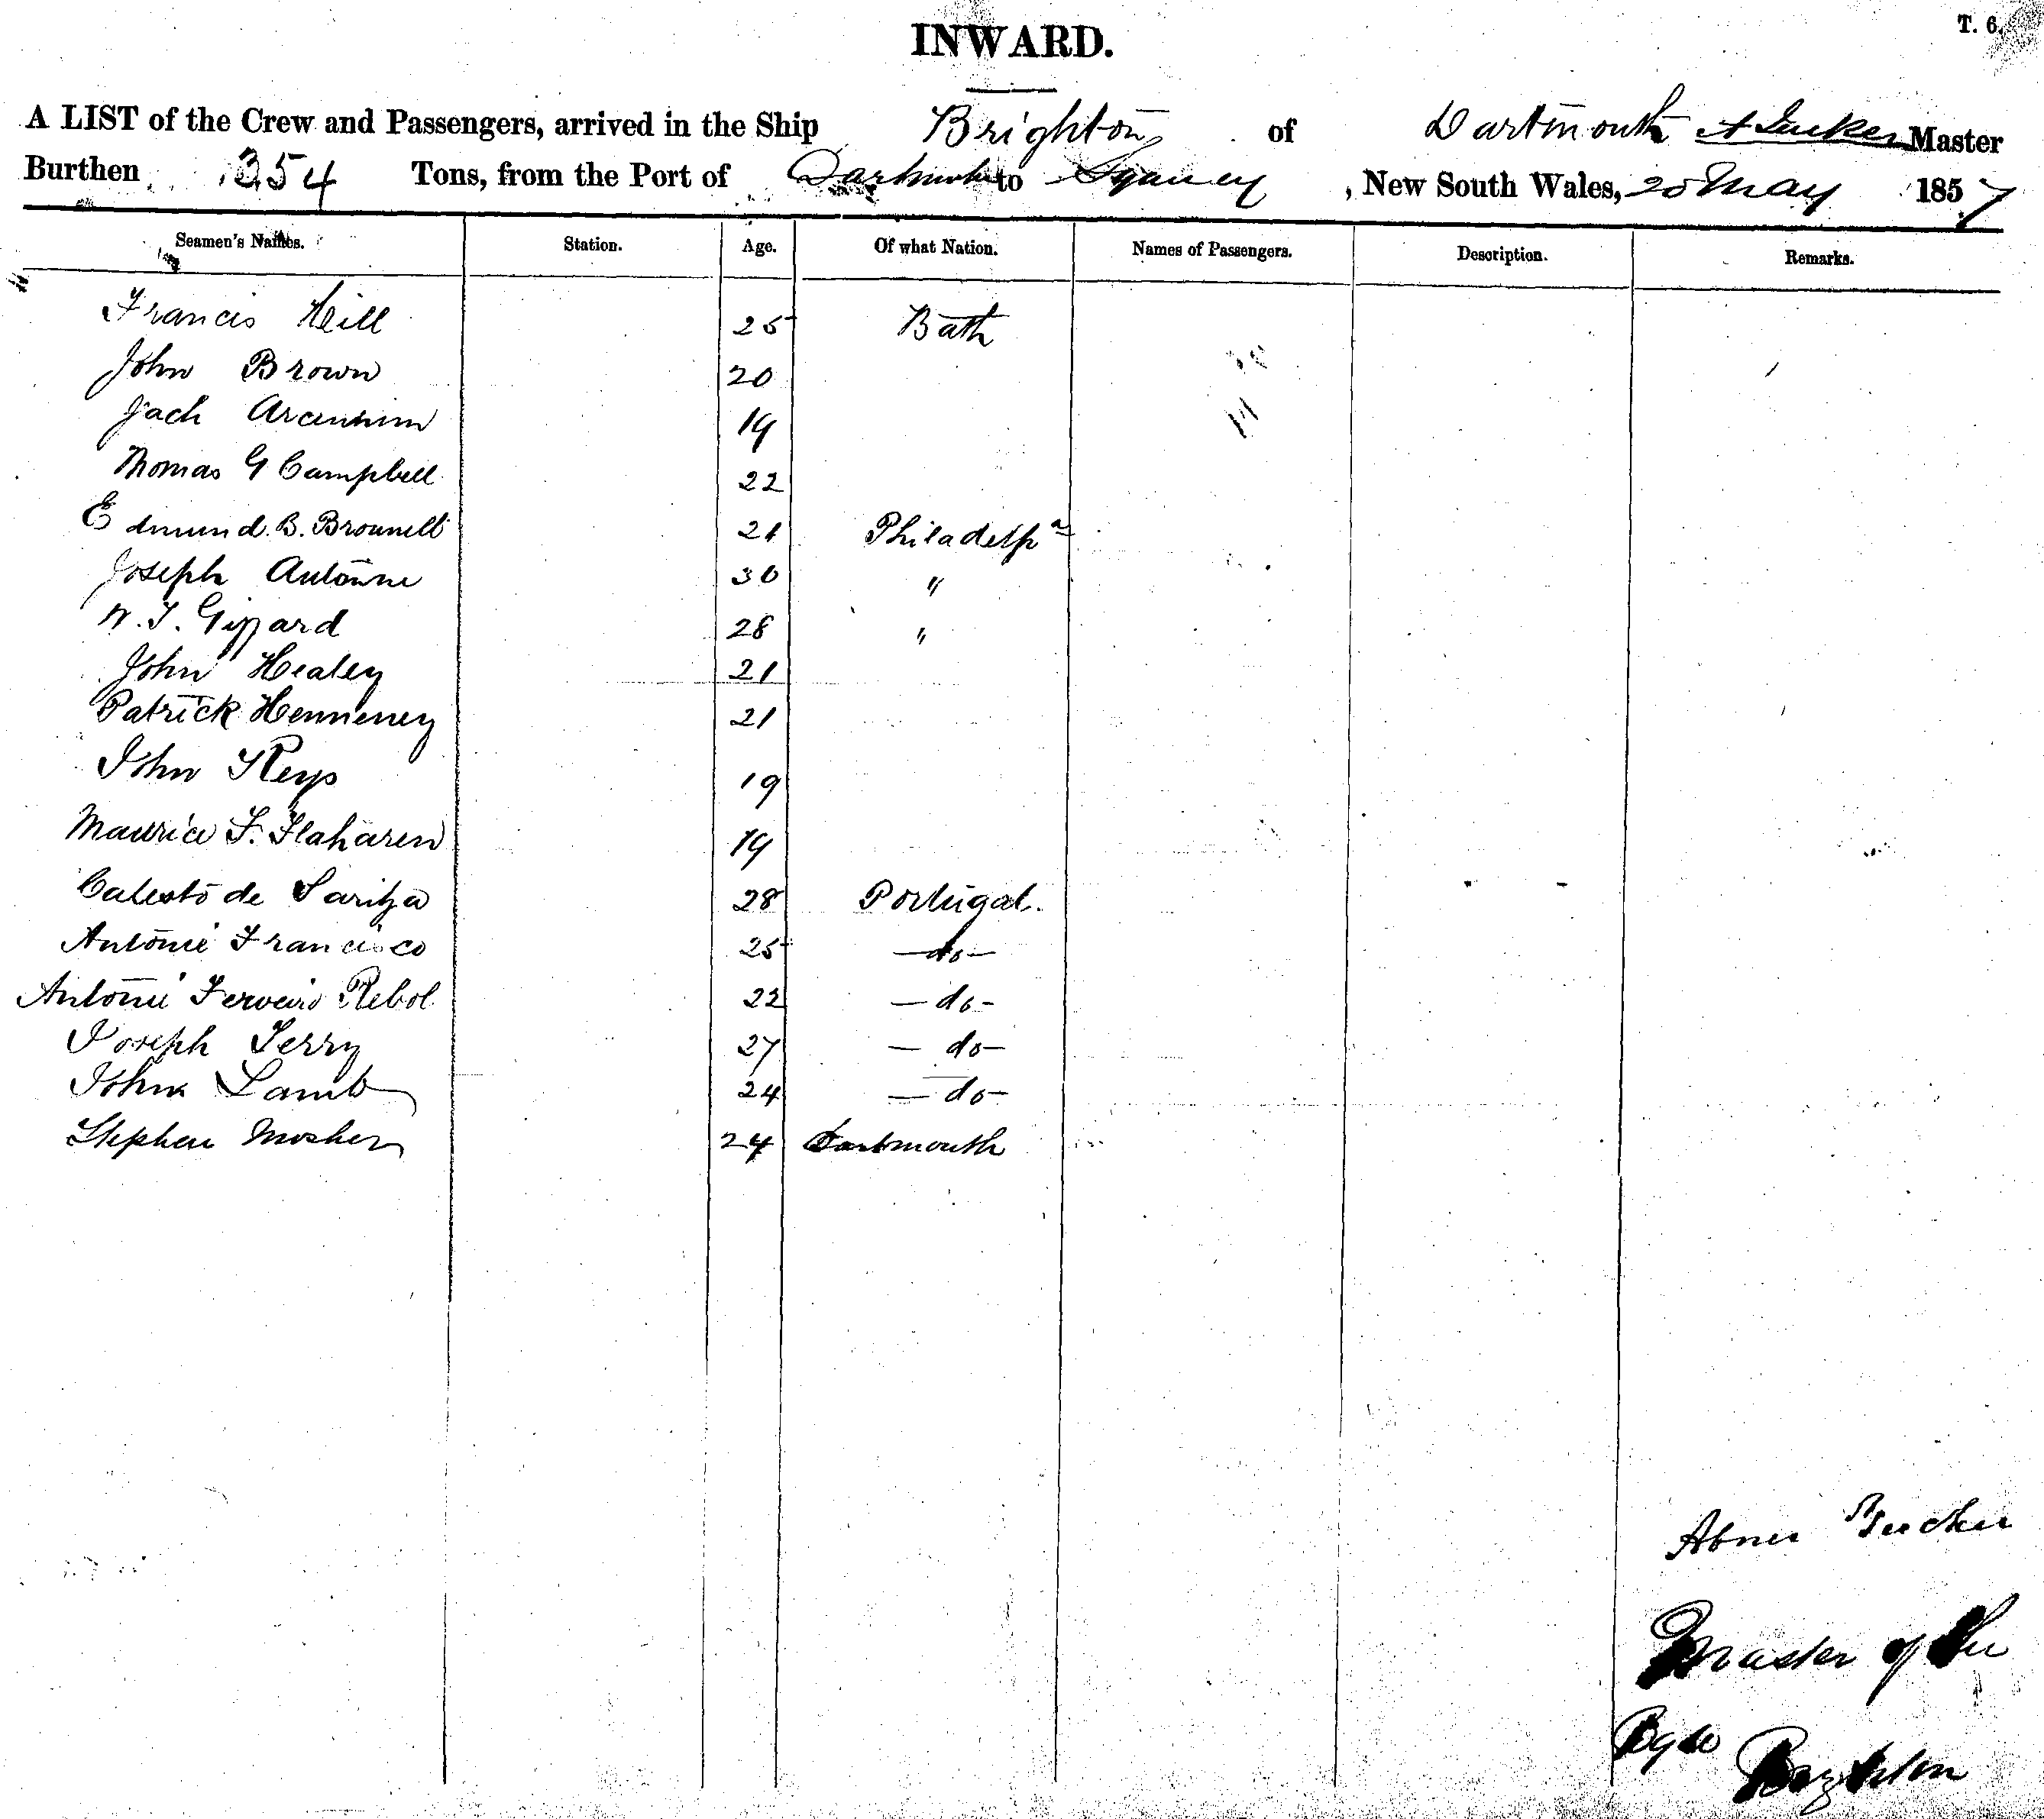 T. 6.
INWARD.
A LIST of the Crew and Passengers, arrived in the Ship Brighton of Dartmouth A Tucker Master
Burthen 354 Tons, from the Port of Dartmouth to Sydney, New South Wales, 20 May 1857
Seamen's Names. Station. Age. Of what Nation. Names of Passengers. Description. Remarks.
Francis Hill 25 Bath
John Brown 20
Jach 19
Thomas G Campbell 22
Edmund. B. Brownell 21 Philadelpa
Joseph Antonne 30 "
W. T. Giffard 28 "
John Healey 21
Patrick Henneney 21
John Keys 19
Maurice F. Flaharen 19
Calesto de 28 Portugal.
Antonie Francisco 25 -do-
Antonie Rebol 22 -do-
Joseph Terry 27 - do-
John Lamb 24 - do-
Stephen Mosher 24 Dartmouth
Abner Tucker
Master of the
Brighton